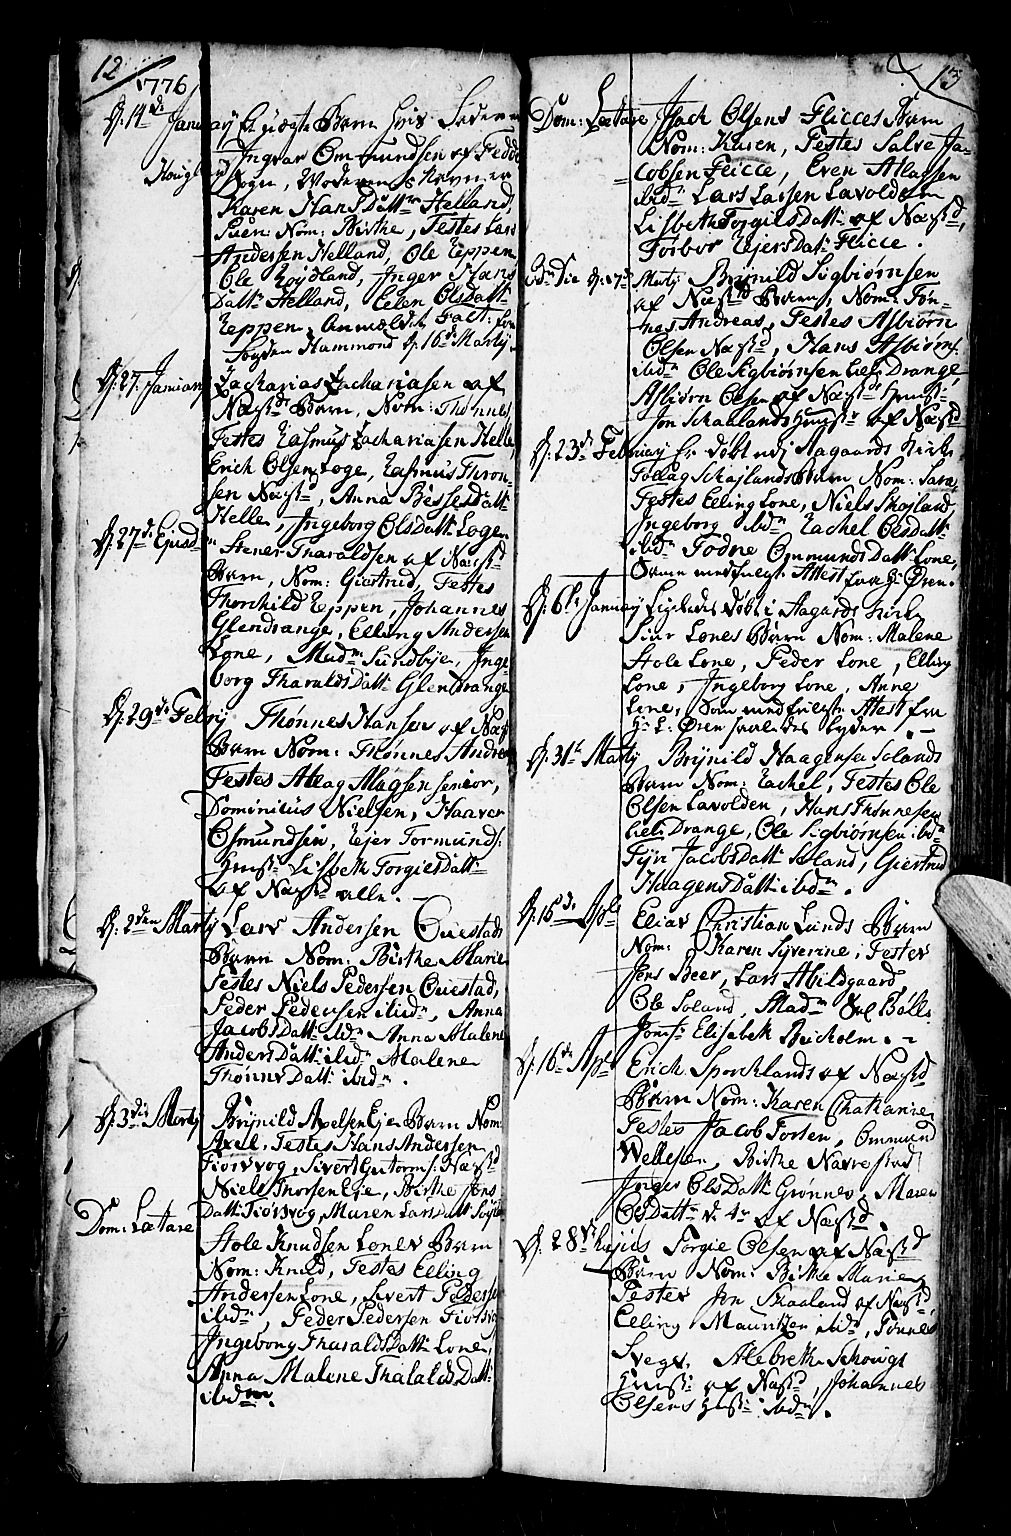 12
1776
D: 14de January Et uægte Barn hvis Faderen
Ingvar Ommundsen af Fedde
Sogn, Moderens Navn er
Karen Hans Dattr Helland,
Nom: Birthe, Testes Lars
Andersen Helland, Ole Eppen
Ole Røydland, Inger Hans
Dattr Helland, Elen Olsdattr
Eppen. Anmeldt
Hammond d: 16de Martij
D: 27. Januarij Zacharias Zachariasen af
Næstd Barn, Nom: Thønnes
Testes Rasmus Zachariasen Helle,
Erich Olsen Loge, Rasmus Thron-
sen Næstd, Anna Bessesdattr
Helle, Ingeborg OlsDattr Logen
D: 27de Ejusdm Stener Tharaldsen af Næstd
Barn, Nom: Giertrud, Testes
Thorchild Eppen, Johannes
Glendrange, Elling Andersen
Lone, Madm Sundbye, Inge-
borg TharaldsDattr Glendrange
D: 29de Febrij Thønnes Hansen af Næstd
Barn Nom: Thønne Andreas
Testes Atlag Alagsen senior,
Dominicus Nielsen, Haaver
Osmundsen, Ejer Tormunds:
Hustr Lisbeth TorgiesDattr
af Næstd alle.
D: 2den Martij Lars Andersen Qvestads
Barn Nom: Birthe Marie
Testes Niels Pedersen Qvestad,
Peder Pedersen ibidm, Anna
JacobsDattr ibdm Anna Malene
AndersDattr ibidm Malene
ThønnesDattr ibidm.
D: 3die Martij Brynild Axelsen Eje Barn Nom:
Axel, Testes Hans Andersen
Fiørsvog, Sivert Gutorms: Næstd
Niels Thorsen Eje, Birthe Jons
Dattr Fiørsvog, Maren LarsDattr
Dom: Lætare
Stole Knudsen Lones Barn
Nom: Knud, Testes Elling
Andersen Lone, Sivert Pedersen
ibidm, Peder Pedersen Fiørsvog
Ingeborg TharaldsDattr Lone,
Anna Malene TharaldsDattr
ibidm.
13
Dom: Lætare Jach Olsens Flicces Barn
Nom: Karen, Testes Salve Ja-
cobsen Flicce, Even Atlagsen
ibidm Lars Larsen Lavolden
Lisbeth TorgilsDattr af Næstd,
Torbor EjersDattr Flicce.
Eodm Die D: 17de Martij Brynild Sigbiørnsen
af Næstd Barn, Nom: Tøn-
nes Andreas, Testes Asbiørn
Olsen Næstd, Hans Asbiørns:
ibidm Ole Sigbiørnsen Lieli Drange,
Asbiørn Olsen af Næstd Hustr
Jon Schaalands Hustr af Næstd
D: 23de Februay Er døbt udi Aagaards Kirke
Tollag Schøjlands Barn Nom: Sara,
Testes Elling Lone, Niels Skøjland
Ingeborg ibdm Rachel OlsDattr
ibidm Todne OmmundsDattr Lone,
Attest fra Hr Ören.
D: 6te January Ligeledes døbt i Aagards Kirke
Siur Lones Barn Nom: Malene
Stole Lone, Peder Lone, Elling
Lone, Ingeborg Lone, Anne
Lone, Som medfulgte Attest fra
Hr: L: Ören saaledes lyder.
D: 31te Martij Brynild Haagensen Solands
Barn Nom: Rachel, Testes Ole
Olsen Lavolden, Hans Thønnesen
Lieli Drange, Ole Sigbiørnsen ibdm
Tyri JacobsDattr Soland, Giertrud
HaagensDattr ibidm.
D: 16de Apl Elias Christian Lunds Barn
Nom: Karen Syverine, Testes
Jens Beer, Lars Abildgaard
Ole Soland, Madm Bølle
Jomfr: Elisabeth Buckholm.
D: 16de Apl Erich Sporchlands af Næstd
Barn Nom: Karen Chathrine
Testes Jacob Torsen, Ommund
Wellesen, Birthe Narrestad
Inger OlsDattr Grønnes, Maren
OlsDattr af Næstd.
D: 28de Torgie Olsen af Næstd
Barn Nom: Birthe Marie
Testes Jon Skaaland af Næstd,
Elling Mauritzen ibidm, Tønnes
Svege, Alebrethe Schougs
Hustr af Næstd, Johannes
Olsens Hustr ibidm.